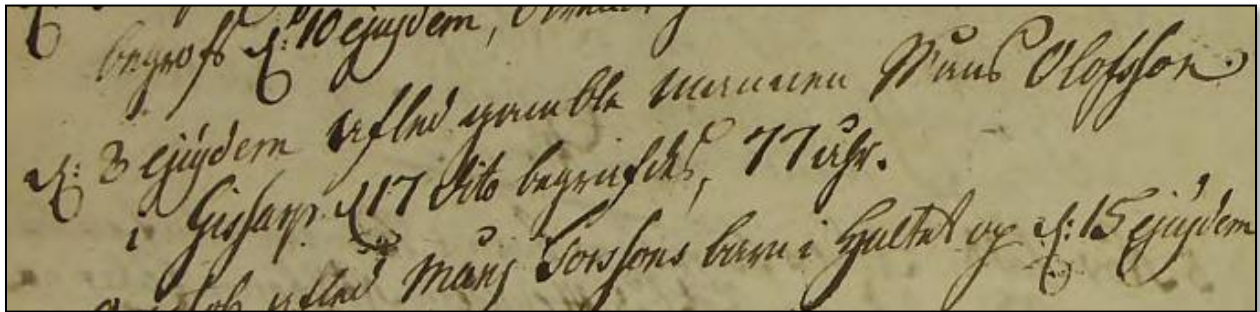 begrofs d: 10 ejusdem,
d: 3 ejusdem afled gamble mannen Måns Olofsson
i Gissarp d 17 dito begrafdes, 77 åhr.
afled Måns Torssons barn i Hultet og d: 15 ejusdem